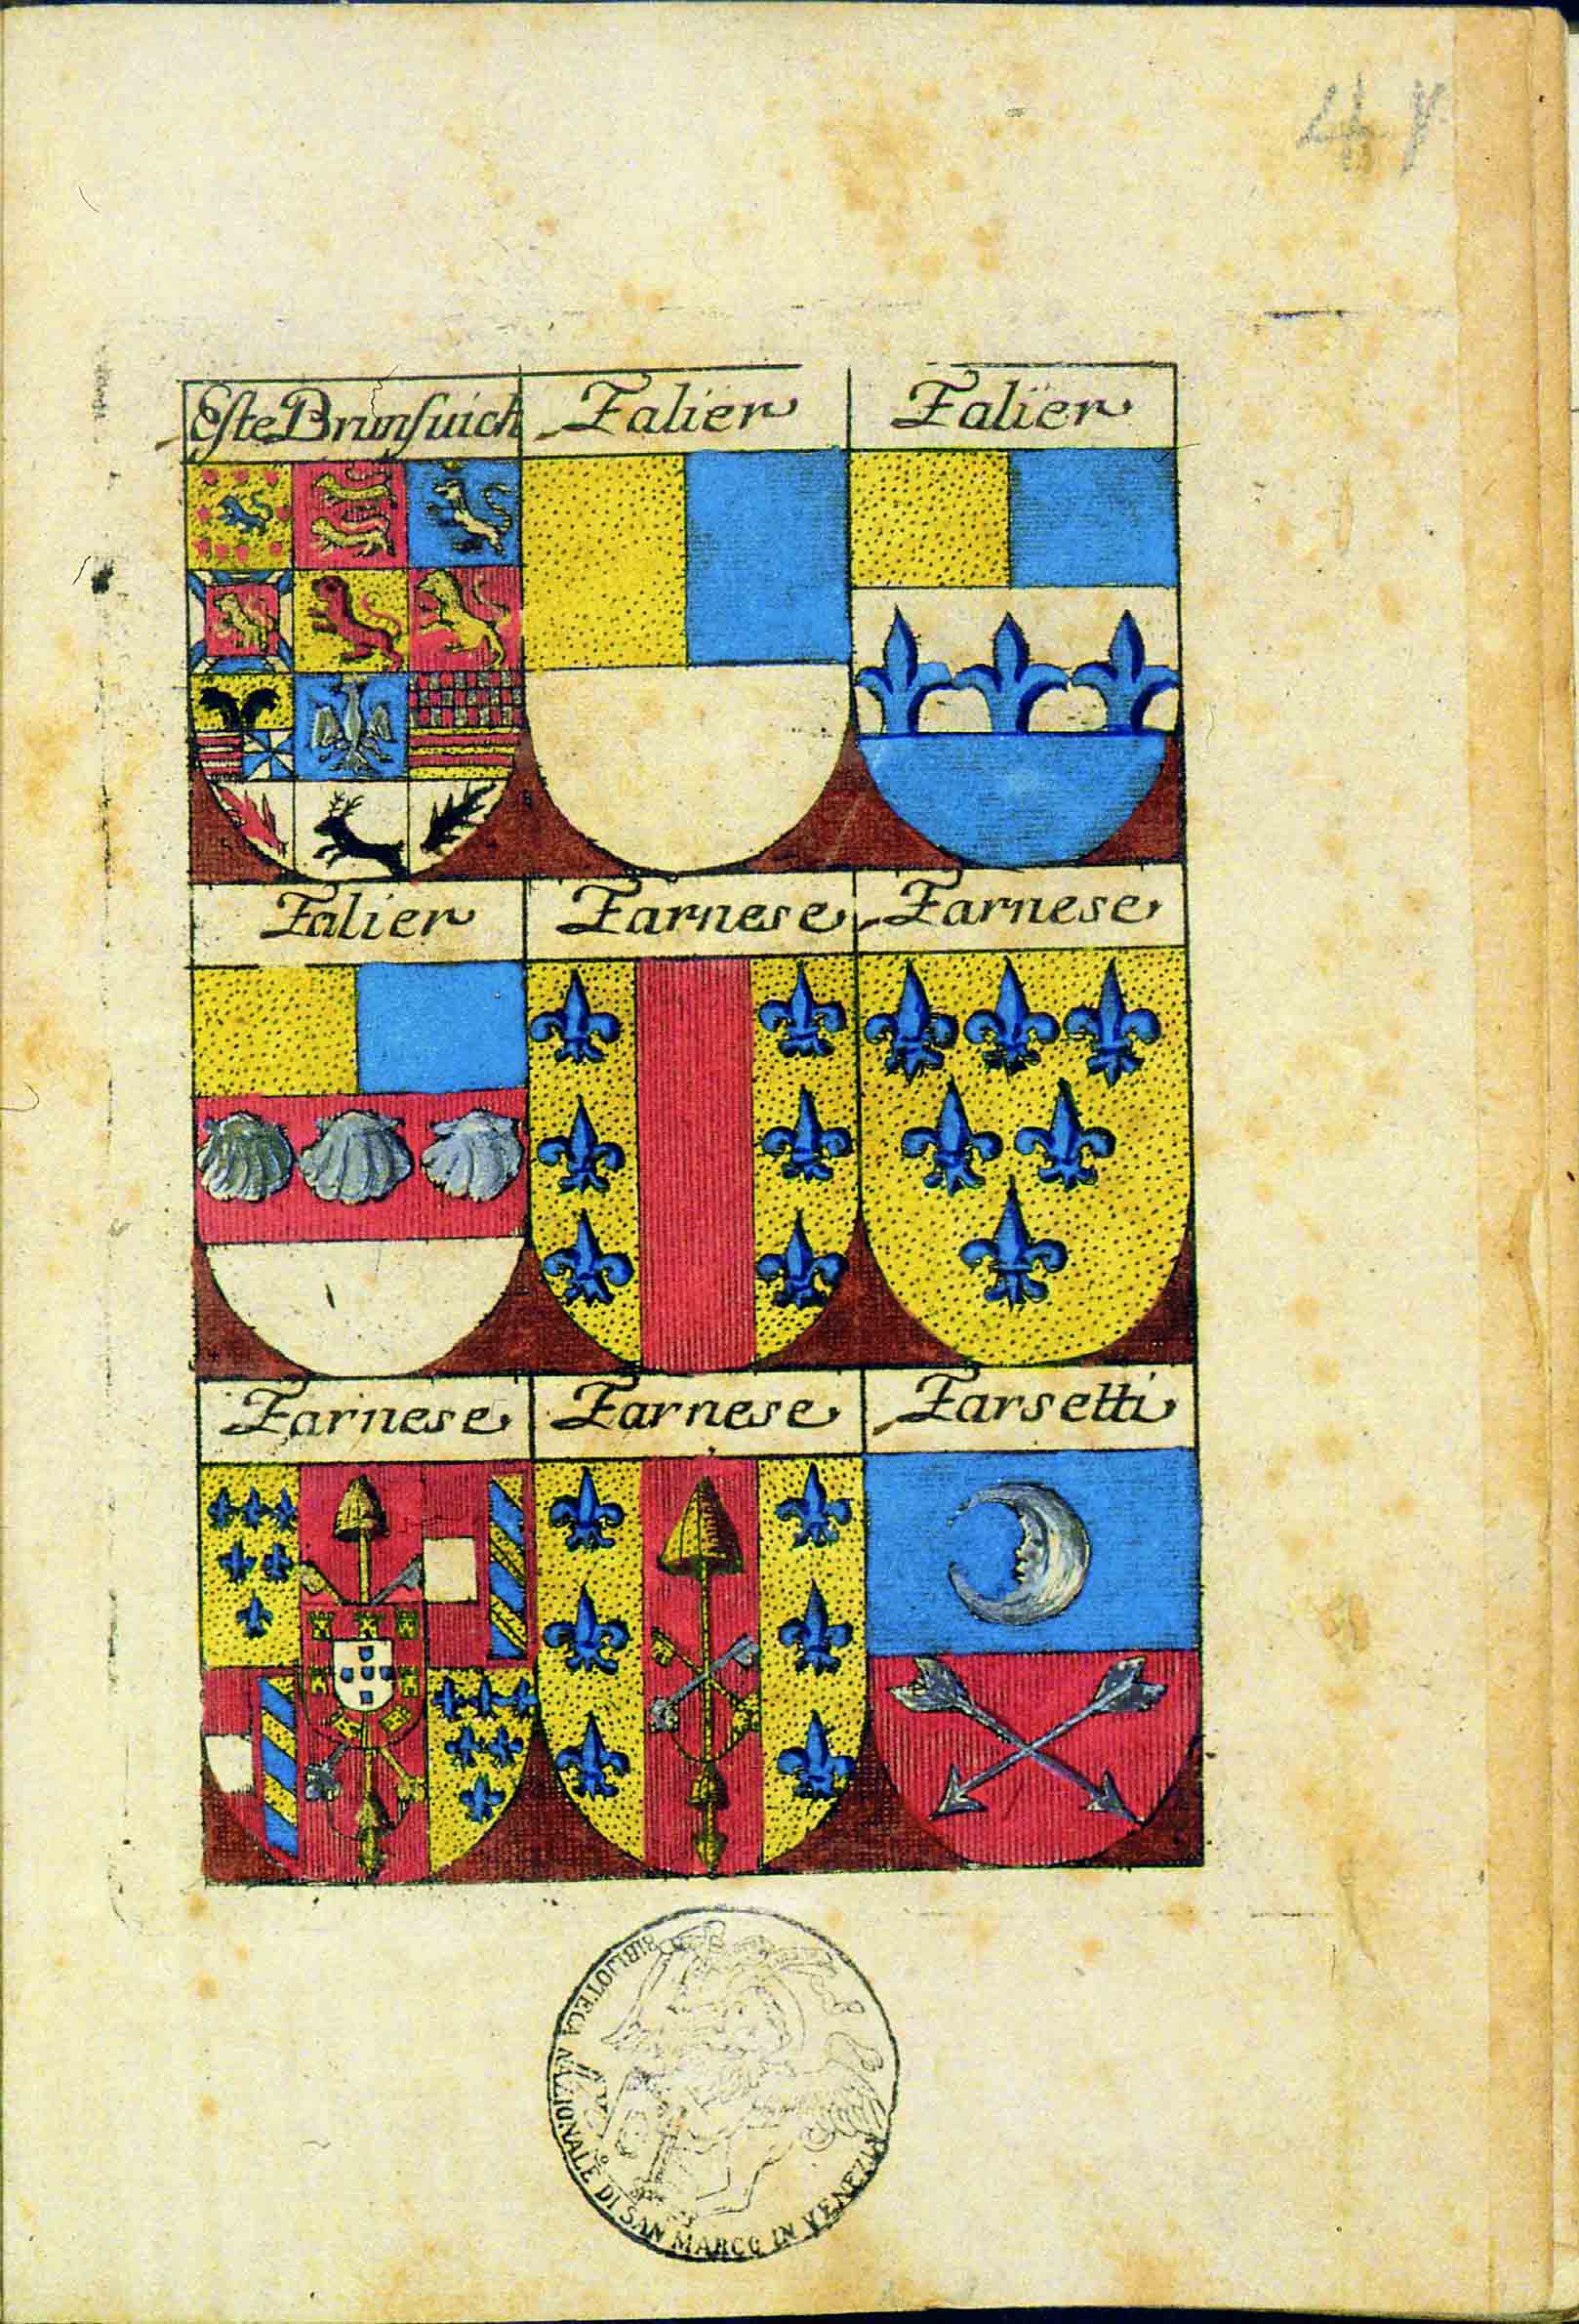 41
Este Brunsuich
Falier
Falier
Falier
Farnese
Farnese
Farnese
Farnese
Farsetti
BIBLIOTECA NAZIONALE DI SAN MARCO IN VENEZIA